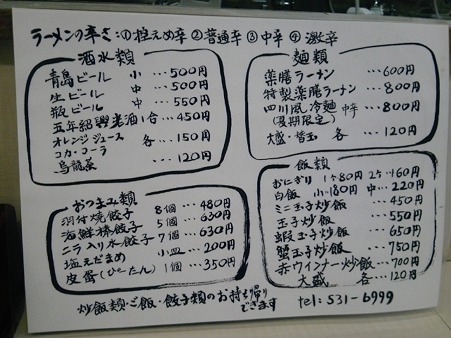 ラーメンの辛さ:①控えめ辛 ②普通辛 ③中辛 ④激辛
酒水類
青島ビール 小 …500円
生ビール 中 …500円
瓶ビール 中 …550円
五年紹興老酒1合 …450円
オレンジジュース 各 …150円
コカ・コーラ
烏龍茶 …120円
麺類
薬膳ラーメン …600円
特製薬膳ラーメン …800円
四川風冷麺 中辛 …800円
(夏期限定)
大盛・替玉 各 …120円
おつまみ類
羽付焼餃子 8個 …480円
海鮮棒餃子 5個 …630円
ニラ入り水餃子 7個 …630円
塩えだまめ 小皿 …200円
皮蛋(ぴーたん) 1個 …350円
飯類
おにぎり 1ケ80円 2ケ…160円
白飯 小…180円 中…220円
ミニ玉子炒飯 …450円
玉子炒飯 …550円
蝦玉子炒飯 …650円
蟹玉子炒飯 …750円
赤ウインナー炒飯 …700円
大盛 各…120円
炒飯類・ご飯・餃子類のお持ち帰り
できます
tel:531-6999